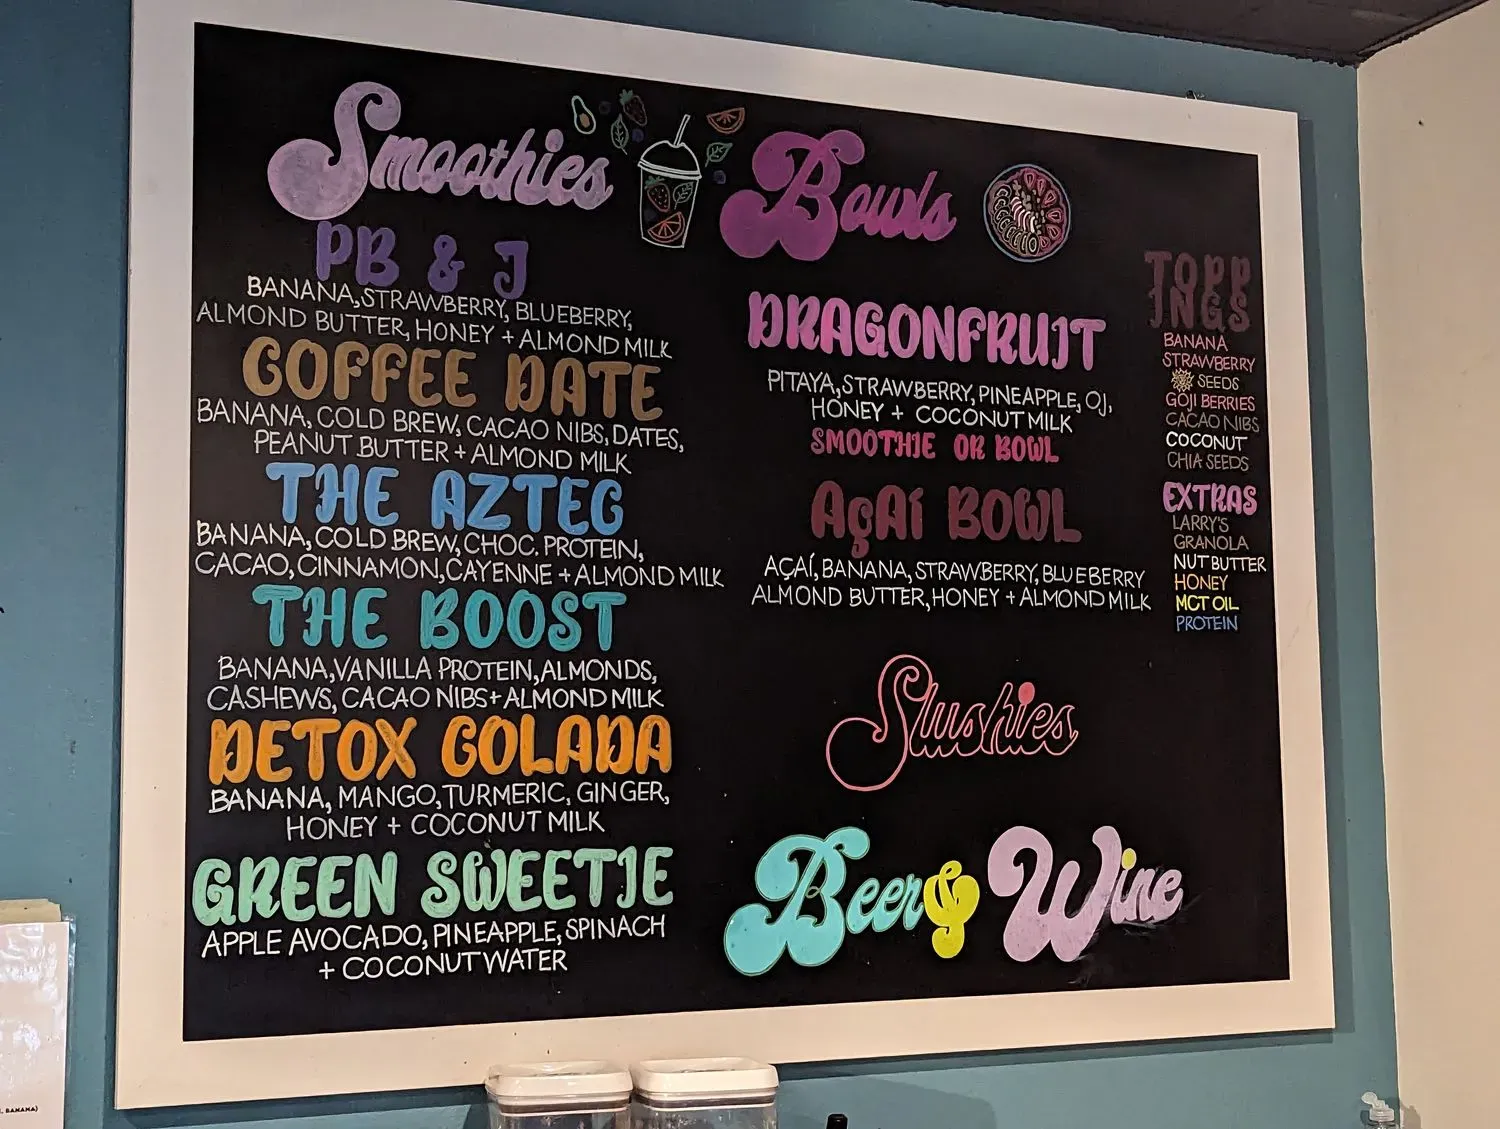 Smoothies
PB & J
BANANA, STRAWBERRY, BLUEBERRY,
ALMOND BUTTER, HONEY + ALMOND MILK
COFFEE DATE
BANANA, COLD BREW, CACAO NIBS, DATES,
PEANUT BUTTER + ALMOND MILK
THE AZTEC
BANANA, COLD BREW, CHOC. PROTEIN,
CACAO, CINNAMON, CAYENNE + ALMOND MILK
THE BOOST
BANANA, VANILLA PROTEIN, ALMONDS,
CASHEWS, CACAO NIBS + ALMOND MILK
DETOX COLADA
BANANA, MANGO, TURMERIC, GINGER,
HONEY + COCONUT MILK
GREEN SWEETIE
APPLE AVOCADO, PINEAPPLE, SPINACH
+ COCONUT WATER
Bowls
DRAGONFRUIT
PITAYA, STRAWBERRY, PINEAPPLE, OJ,
HONEY + COCONUT MILK
SMOOTHIE OR BOWL
AÇAÍ BOWL
AÇAÍ, BANANA, STRAWBERRY, BLUEBERRY
ALMOND BUTTER, HONEY + ALMOND MILK
Slushies
Beer & Wine
TOPP
INGS
BANANA
STRAWBERRY
SEEDS
GOJI BERRIES
CACAO NIBS
COCONUT
CHIA SEEDS
EXTRAS
LARRY'S
GRANOLA
NUT BUTTER
HONEY
MCT OIL
PROTEIN
BANANA)